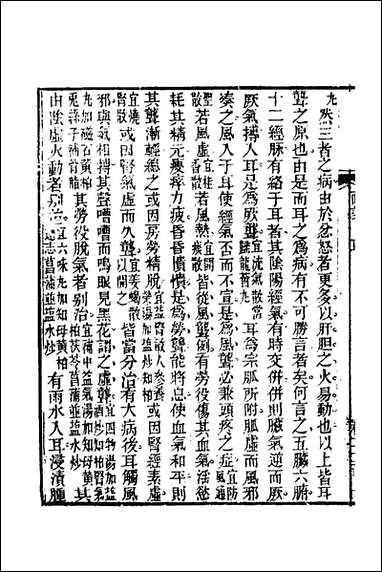 九 然三者之病由於忿怒者更多以肝胆之火易動也以上皆耳
聾之原也由是而耳之爲病有不可勝言者矣何言之五臟六腑
十二經脉有絡于耳者其陰陽經氣有時交併併則臟氣逆而厥
厥氣搏入耳是爲厥聾宜流氣散當歸龍薈丸 耳爲宗脈所附脈虛而風邪
湊之風入于耳使經氣否而不宣是爲風聾必兼頭疼之症宜防風通
聖散 若風虛宜 散 若風熱宜 散 皆從風聾例有勞役傷其血氣淫慾
耗其精元瘦瘁力疲昏昏憒憒是爲勞聾能將息使血氣和平則
其聾漸輕總之或因房勞精脫宜益腎散人參養榮湯加知母黃柏 或因腎經素虛宜
腎散 或因腎氣虛而久聾宜 皆當分治有大病後耳觸風
邪與氣相搏其聲嘈嘈而鳴眼見黑花謂之虛聾宜四物湯加 其
丸加磁石黃柏 其勞役脫氣者別治宜補中益氣湯加知母黃柏茯苓菖蒲並鹽水炒 其
由陰虛火動者別治宜六味丸加知母黃柏遠志菖蒲並鹽水炒 有雨水入耳浸漬腫